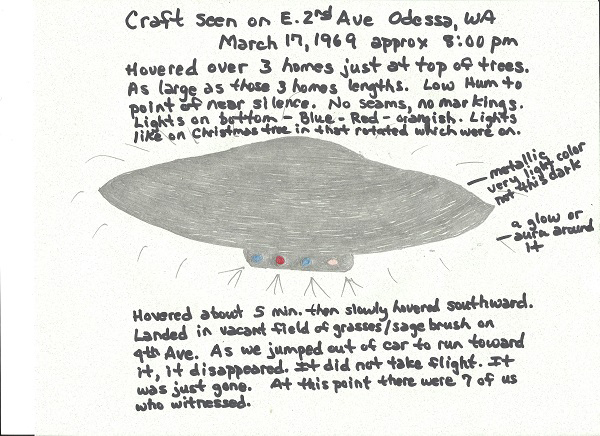 Craft seen on E. 2nd Ave Odessa, WA
March 17, 1969 approx 8:00 pm
Hovered over 3 homes just at top of trees.
As large as those 3 homes lengths. Low Hum to
point of near silence. No seams, no markings.
Lights on bottom - Blue - Red - orangish. Lights
like on Christmas tree in that rotated which were on.
metallic
very light color
not this dark
a glow or
aura around
it
Hovered about 5 min. then slowly hovered southward.
Landed in vacant field of grasses/sage brush on
4th Ave. As we jumped out of car to run toward
it, it disappeared. It did not take flight. It
was just gone. At this point there were 7 of us
who witnessed.